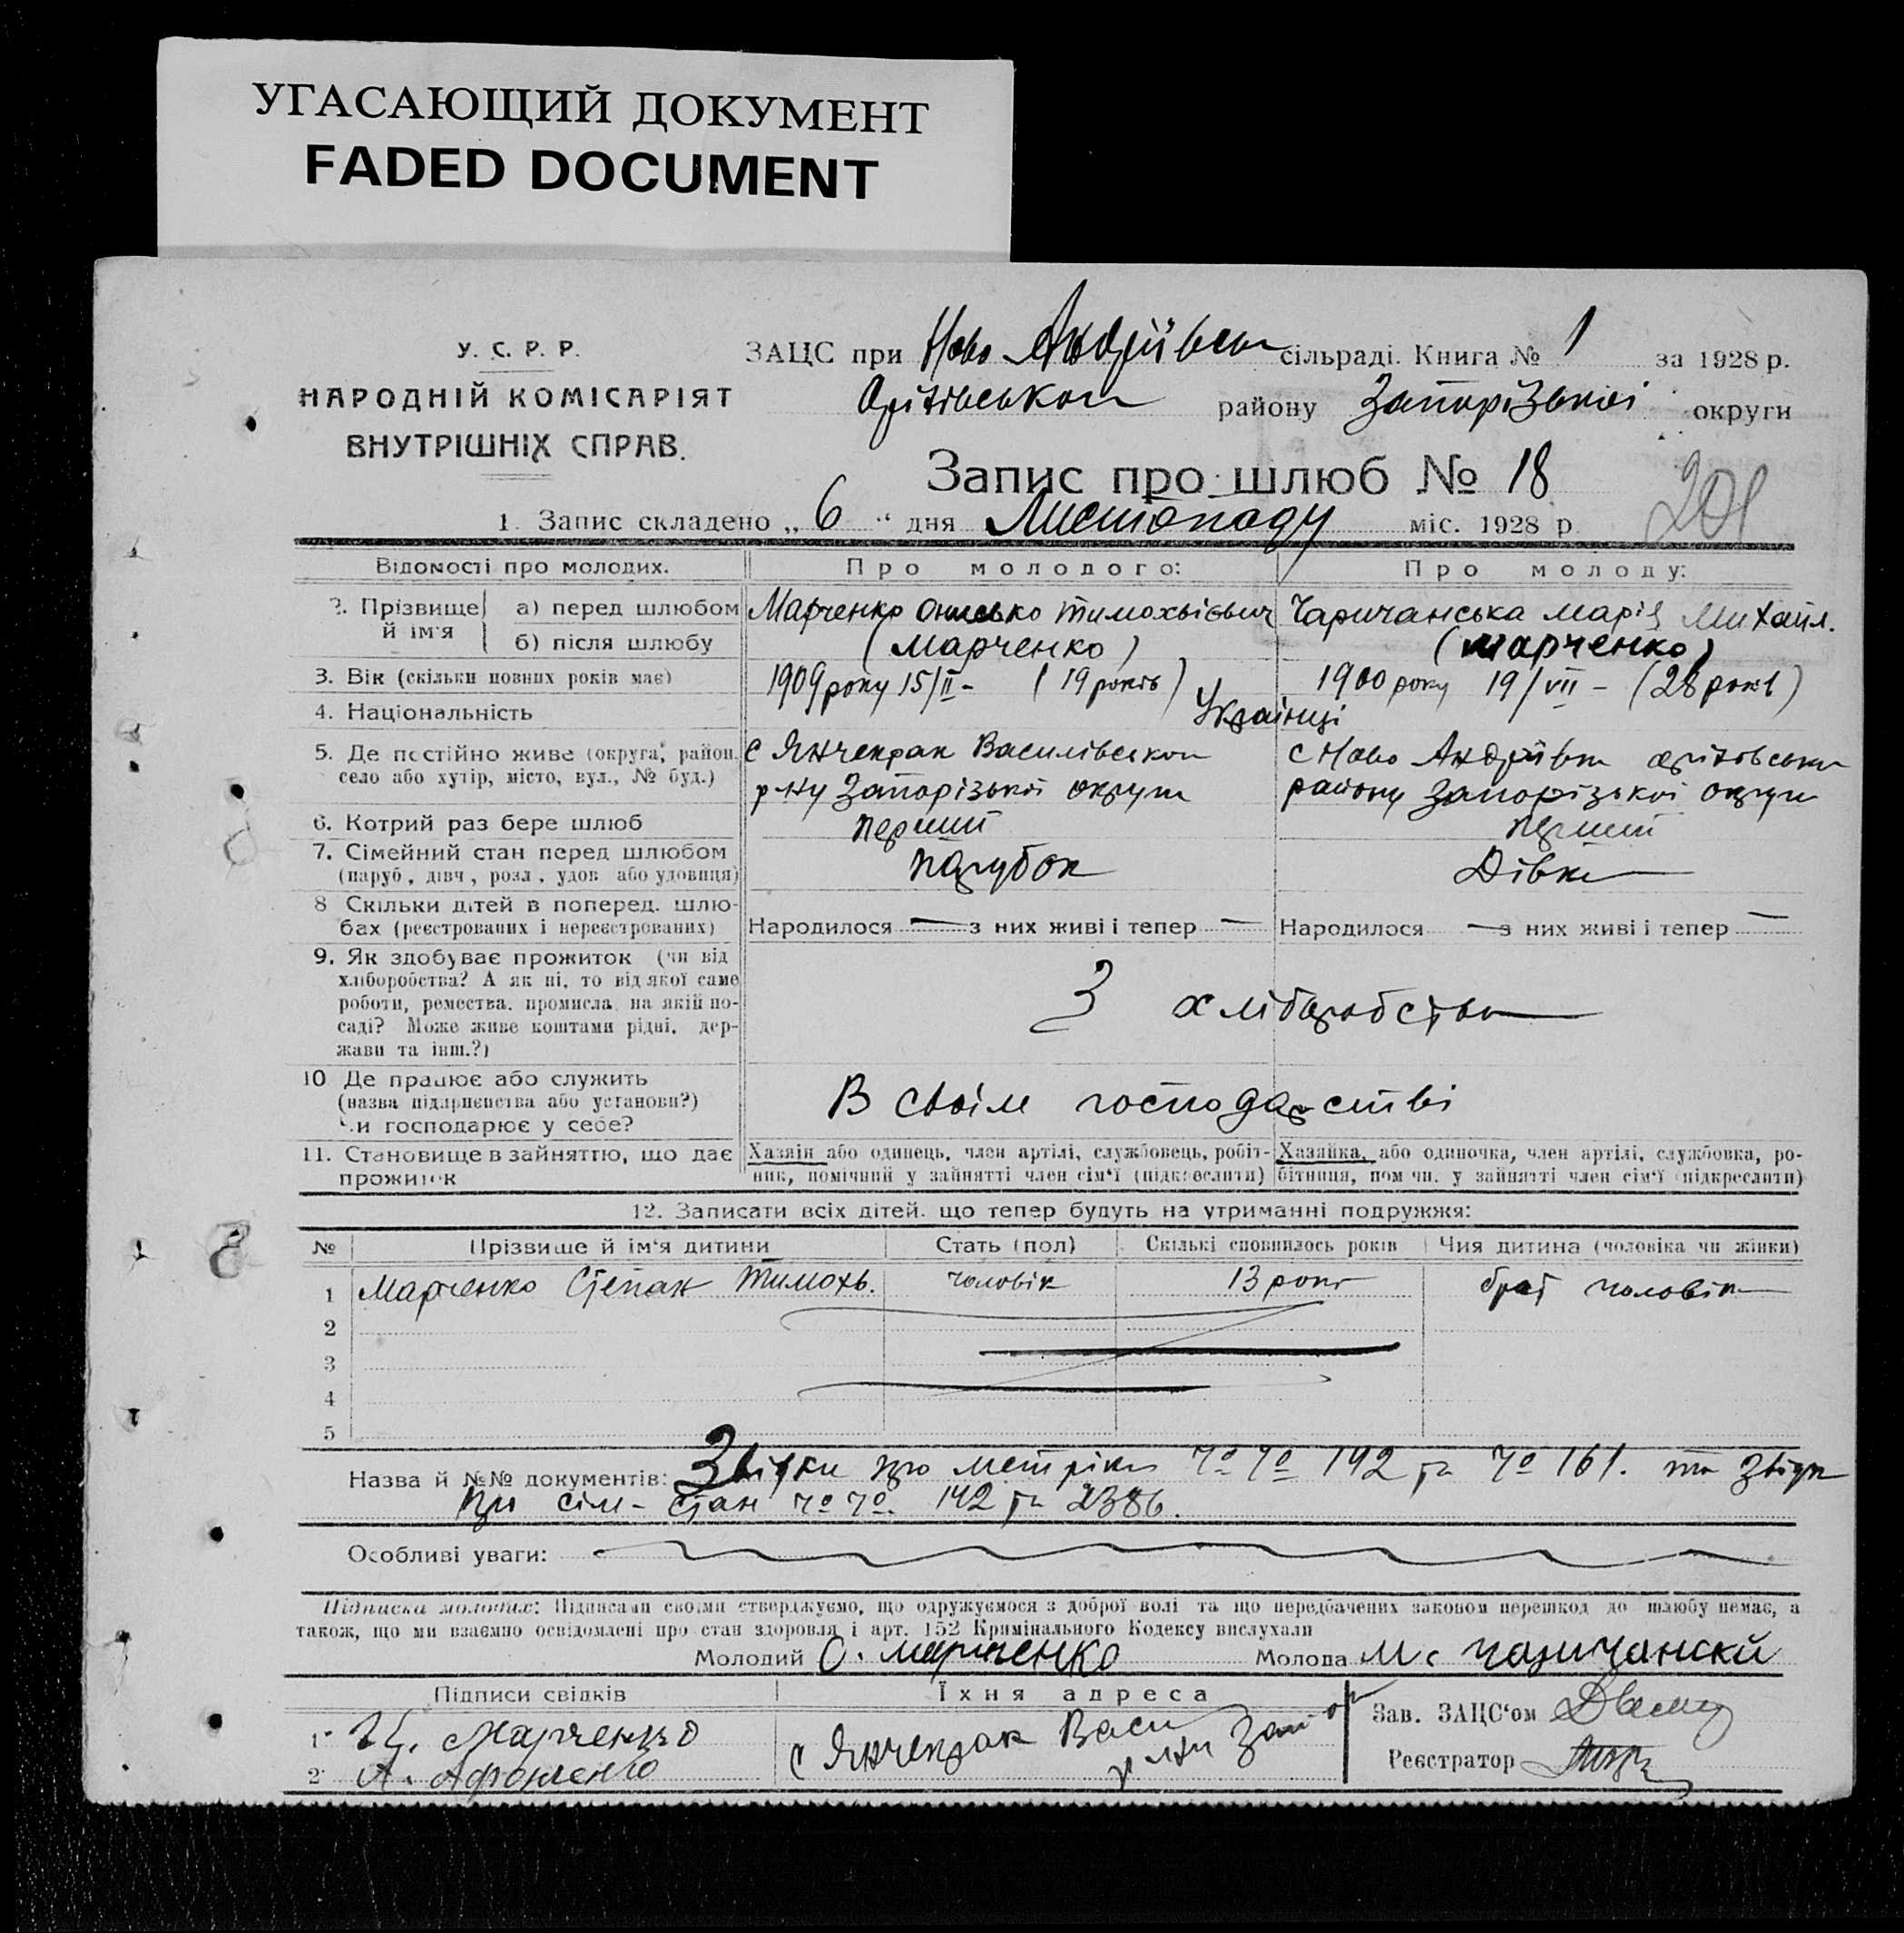 УГАСАЮЩИЙ ДОКУМЕНТ
FADED DOCUMENT
У. С. Р. Р.
НАРОДНІЙ КОМІСАРІЯТ
ВНУТРІШНІХ СПРАВ.
ЗАЦС при Ново Андріївськ сільраді. Книга № 1 за 1928 р.
Оріхівськом району Запорізької округи
Запис про шлюб № 18
201
1. Запис складено „ 6 “ дня Листопаду міс. 1928 р
Відомості про молодих. Про молодого: Про молоду:
2. Прізвище й ім'я
а) перед шлюбом Марченко Онисько Тимохвієвич Чаричанська Марія Михайл.
б) після шлюбу (Марченко) (Марченко)
3. Вік (скільки повних років має) 1909 року 15/II - (19 років) 1900 року 19/VII - (28 рокі)
4. Національність Українці
5. Де постійно живе (округа, район, с Янчекрак Василівськом с Ново Андріївки Оріхівськ
село або хутір, місто, вул., № буд.) р-ну Запорізької округи району Запорізької округи
6. Котрий раз бере шлюб перший перший
7. Сімейний стан перед шлюбом парубок Дівка
(паруб., дівч., розл., удов. або удовиця)
8 Скільки дітей в поперед. шлю-
бах (реєстрованих і нереєстрованих) Народилося — з них живі і тепер — Народилося — з них живі і тепер —
9. Як здобуває прожиток (чи від
хліборобства? А як ні, то від якої саме
роботи, ремества, промисла, на якій по- З хліборобства
саді? Може живе коштами рідні, дер-
жави та інш.?)
10 Де працює або служить
(назва підприємства або установи?) В своїм господарстві
Чи господарює у себе?
11. Становище в зайняттю, що дає Хазяїн або одинець, член артілі, службовець, робіт- Хазяйка, або одиночка, член артілі, службовка, ро-
прожиток ник, помічний у зайнятті член сім'ї (підкреслити) бітниця, пом чн. у зайнятті член сім'ї (підкреслити)
12. Записати всіх дітей, що тепер будуть на утриманні подружжя:
№ Прізвище й ім'я дитини Стать (пол) Скількі сповнилось років Чия дитина (чоловіка чи жінки)
1 Марченко Степан Тимохв. чоловік 13 рокі брат чоловіка
2
3
4
5
Назва й №№ документів: Звідки про метріки 192 та 161. та звідки
про сім- стан 142 та 2386.
Особливі уваги:
Підписка молодих: Підписами своїми стверджуємо, що одружуємося з доброї волі та що передбачених законом перешкод до шлюбу немає, а
також, що ми взаємно освідомлені про стан здоровля і арт. 152 Кримінального Кодексу вислухали
Молодий О. Марченко Молода М. Чаричанскй
Підписи свідків Їхня адреса
1 Марченко с Янчекрак Васи
2 А. Афонченко р-ну Запор
Зав. ЗАЦС'ом
Реєстратор